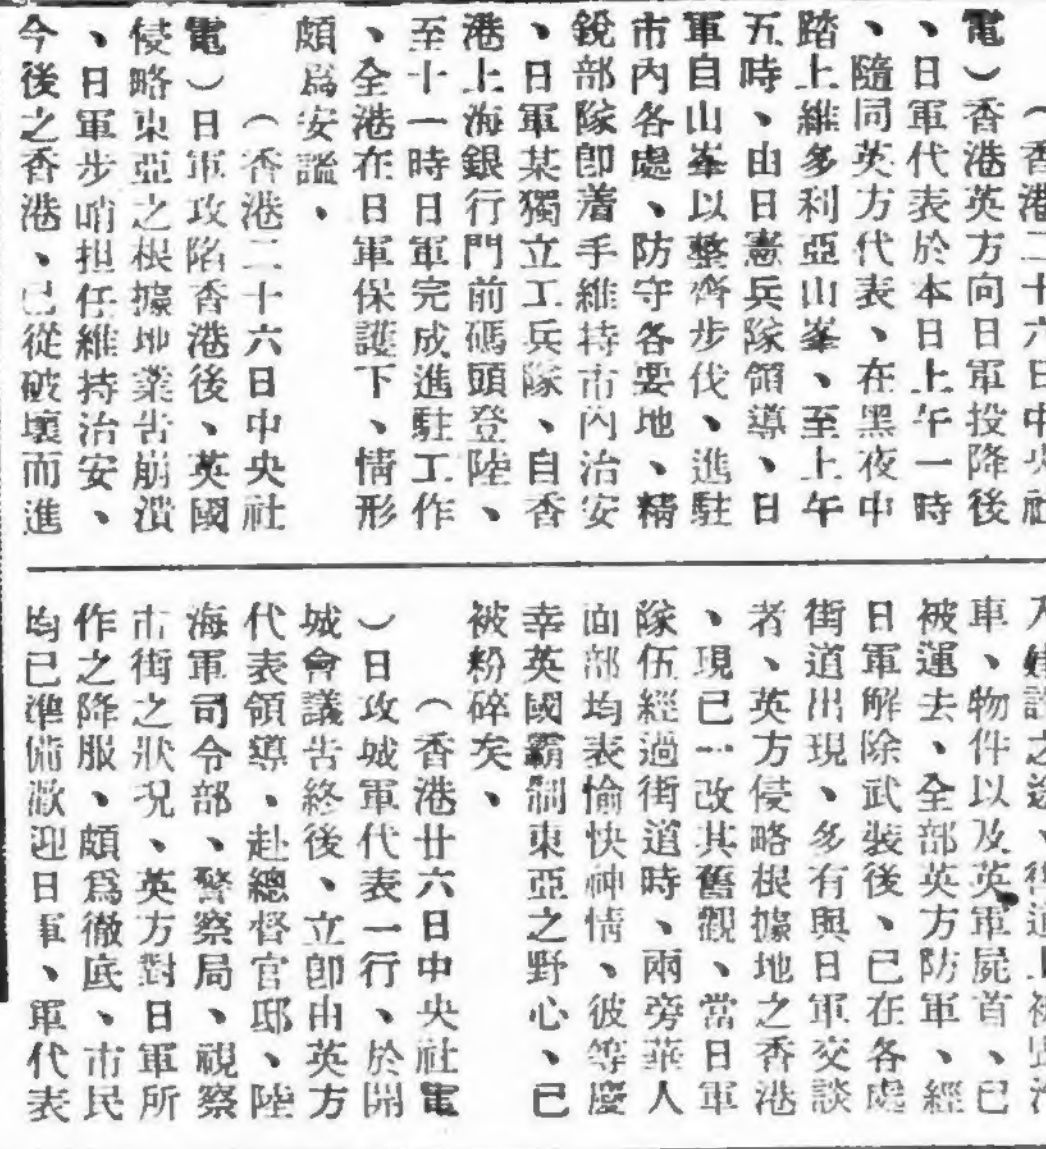 （香港二十六日中央社
電）香港英方向日軍投降後
、日軍代表於本日上午一時
、隨同英方代表、在黑夜中
踏上維多利亞山峯、至上午
五時、由日憲兵隊領導、日
軍自山峯以整齊步伐、進駐
市內各處、防守各要地、精
銳部隊卽着手維持市內治安
、日軍某獨立工兵隊、自香
港上海銀行門前碼頭登陸、
至十一時日軍完成進駐工作
、全港在日軍保護下、情形
頗爲安謐、
（香港二十六日中央社
電）日軍攻陷香港後、英國
侵略東亞之根據地業吿崩潰
、日軍步哨担任維持治安、
今後之香港、已從破壞而進
之途、街道上
車、物件以及英軍屍首、已
被運去、全部英方防軍、經
日軍解除武裝後、已在各處
街道出現、多有與日軍交談
者、英方侵略根據地之香港
、現已一改其舊觀、當日軍
隊伍經過街道時、兩旁華人
面部均表愉快神情、彼等慶
幸英國霸制東亞之野心、已
被粉碎矣、
（香港廿六日中央社電
）日攻城軍代表一行、於開
城會議吿終後、立卽由英方
代表領導、赴總督官邸、陸
海軍司令部、警察局、視察
市街之狀况、英方對日軍所
作之降服、頗爲徹底、市民
均已準備歡迎日軍、軍代表